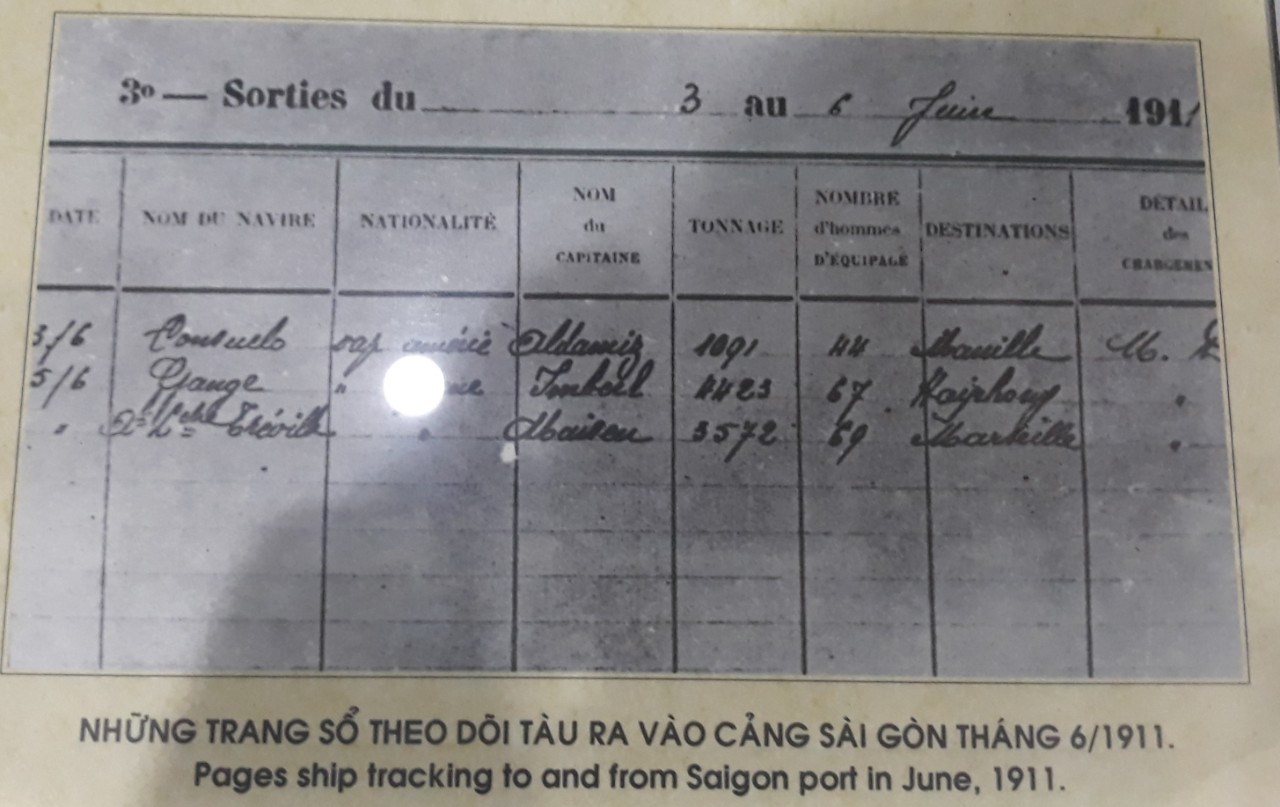 3º — Sorties du 3 au 6 Juin 1911
DATE NOM DU NAVIRE NATIONALITÉ NOM du CAPITAINE TONNAGE NOMBRE d'hommes D'ÉQUIPAGE DESTINATIONS DÉTAIL des CHARGEMEN
3/6 Consuelo vap Aldamiz 1091 44 Manille M.
5/6 Gange " Imbert 4423 67 Haiphong "
" Tréville " Maisen 3572 69 Marseille "
NHỮNG TRANG SỔ THEO DÕI TÀU RA VÀO CẢNG SÀI GÒN THÁNG 6/1911.
Pages ship tracking to and from Saigon port in June, 1911.